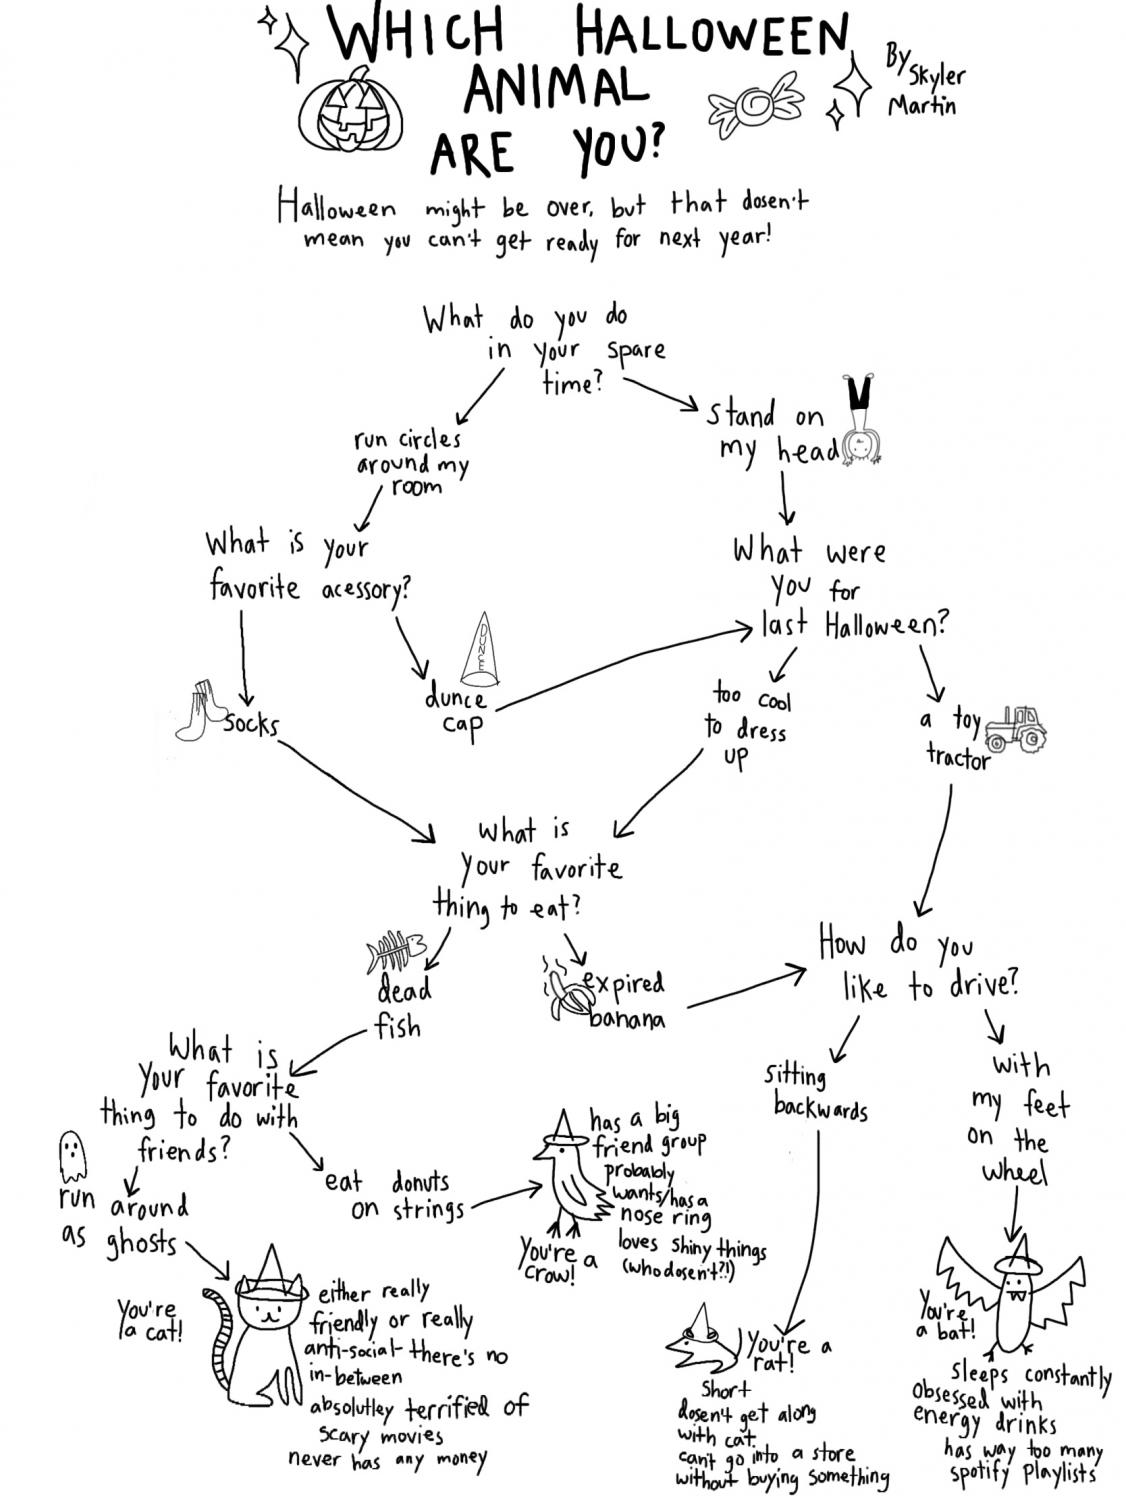 WHICH HALLOWEEN
ANIMAL
ARE YOU?
By
Skyler
Martin
Halloween might be over, but that dosen't
mean you can't get ready for next year!
What do you do
in your spare
time?
run circles
around my
room
Stand on
my head
What is your
favorite acessory?
What were
you for
last Halloween?
DUNCE
dunce
cap
socks
too cool
to dress
up
a toy
tractor
What is
your favorite
thing to eat?
dead
fish
expired
banana
How do you
like to drive?
What is
your favorite
thing to do with
friends?
sitting
backwards
with
my feet
on the
wheel
run around
as ghosts
eat donuts
on strings
has a big
friend group
probably
wants/has a
nose ring
loves shiny things
(who dosen't?!)
You're a
crow!
You're
a cat!
either really
friendly or really
anti-social- there's no
in-between
absolutley terrified of
scary movies
never has any money
You're a
rat!
Short
dosen't get along
with cat.
can't go into a store
without buying something
You're
a bat!
sleeps constantly
obsessed with
energy drinks
has way too many
spotify playlists